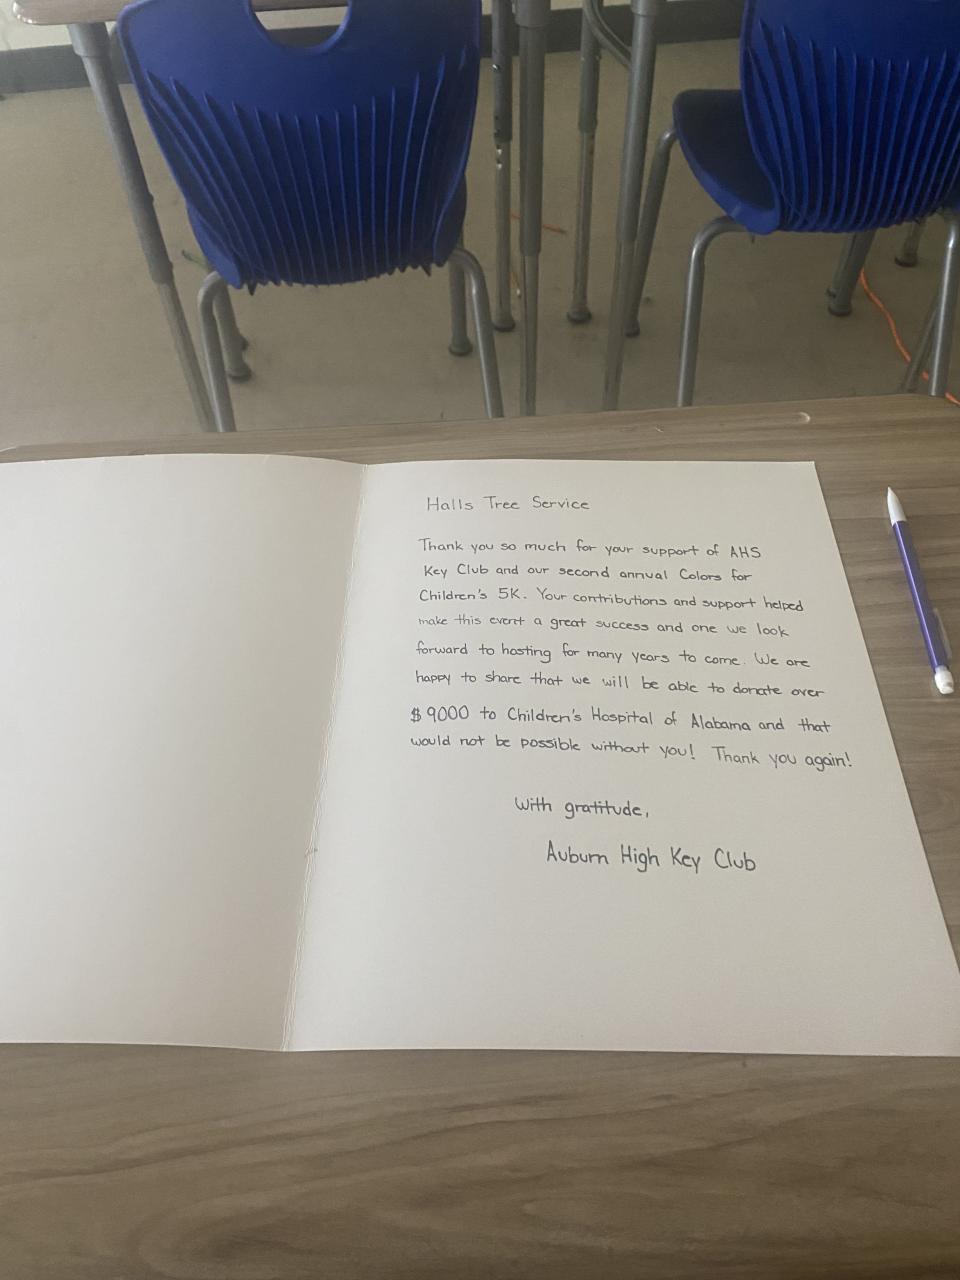 Halls Tree Service
Thank you so much for your support of AHS
Key Club and our second annual Colors for
Children's 5K. Your contributions and support helped
make this event a great success and one we look
forward to hosting for many years to come. We are
happy to share that we will be able to donate over
$9000 to Children's Hospital of Alabama and that
would not be possible without you! Thank you again!
With gratitude,
Auburn High Key Club